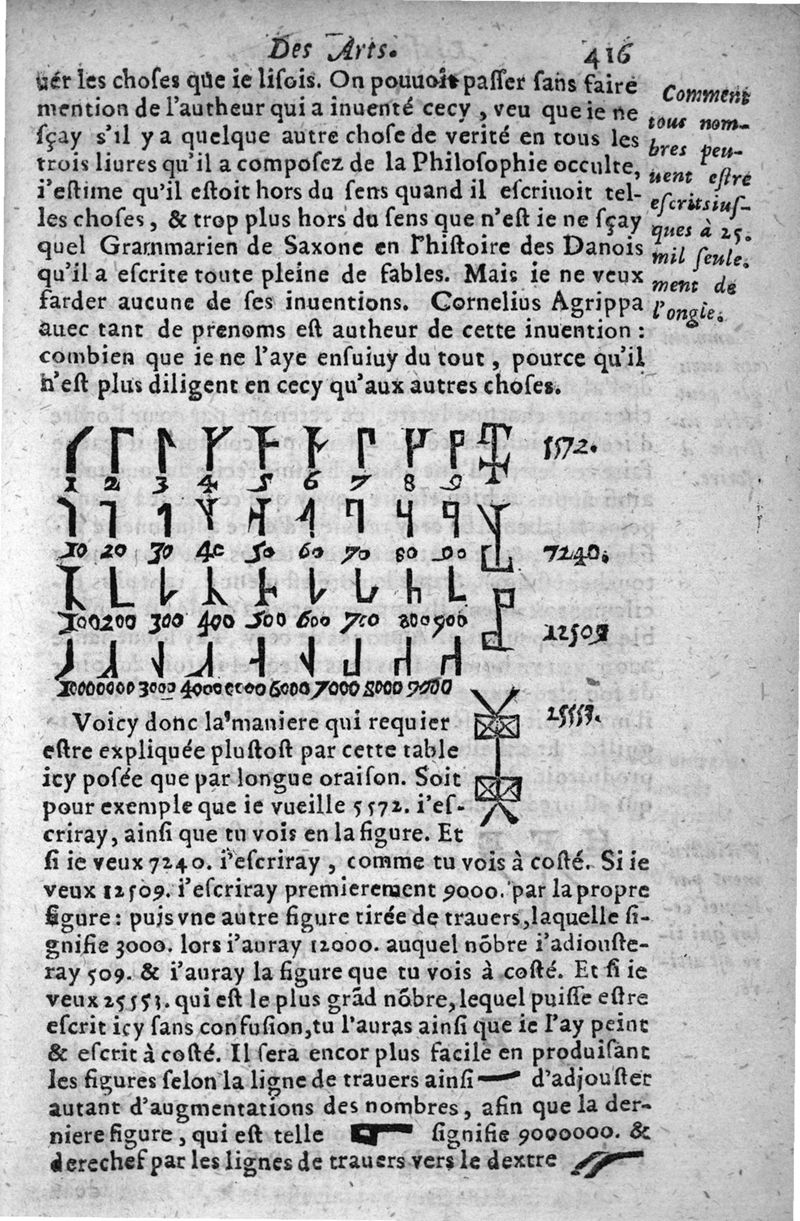 Des Arts.
416
uér les choſes que ie liſois. On pouuoit paſſer ſans faire
mention de l'autheur qui a inuenté cecy, veu que ie ne
ſçay s'il y a quelque autre choſe de verité en tous les
trois liures qu'il a compoſez de la Philoſophie occulte,
i'eſtime qu'il eſtoit hors du ſens quand il eſcriuoit tel-
les choſes, & trop plus hors du ſens que n'eſt ie ne ſçay
quel Grammarien de Saxone en l'hiſtoire des Danois
qu'il a eſcrite toute pleine de fables. Mais ie ne veux
farder aucune de ſes inuentions. Cornelius Agrippa
auec tant de prenoms eſt autheur de cette inuention :
combien que ie ne l'aye enſuiuy du tout, pource qu'il
n'eſt plus diligent en cecy qu'aux autres choſes.
Comment
tous nom-
bres peu-
uent eſtre
eſcrits iuſ-
ques à 25.
mil ſeule-
ment de
l'ongle.
1 2 3 4 5 6 7 8 9
5572.
10 20 30 40 50 60 70 80 90
7240.
100 200 300 400 500 600 700 800 900
12509
1000 3000 4000 6000 7000 8000 9000
25553.
Voicy donc la maniere qui requier
eſtre expliquée pluſtoſt par cette table
icy poſée que par longue oraiſon. Soit
pour exemple que ie vueille 5572. i'eſ-
criray, ainſi que tu vois en la figure. Et
ſi ie veux 7240. i'eſcriray, comme tu vois à coſté. Si ie
veux 12509. i'eſcriray premierement 9000. par la propre
figure : puis vne autre figure tirée de trauers, laquelle ſi-
gnifie 3000. lors i'auray 12000. auquel nõbre i'adiouſte-
ray 509. & i'auray la figure que tu vois à coſté. Et ſi ie
veux 25553. qui eſt le plus grãd nõbre, lequel puiſſe eſtre
eſcrit icy ſans confuſion, tu l'auras ainſi que ie l'ay peint
& eſcrit à coſté. Il ſera encor plus facile en produiſant
les figures ſelon la ligne de trauers ainſi d'adjouſter
autant d'augmentations des nombres, afin que la der-
niere figure, qui eſt telle ſignifie 9000000. &
derechef par les lignes de trauers vers le dextre